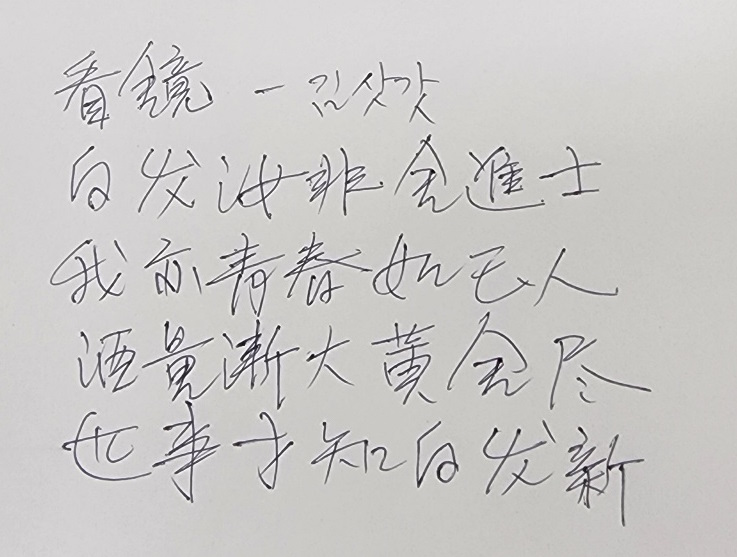 看鏡 - 김삿갓
白发汝非金進士
我亦青春如玉人
酒量漸大黄金尽
世事才知白发新